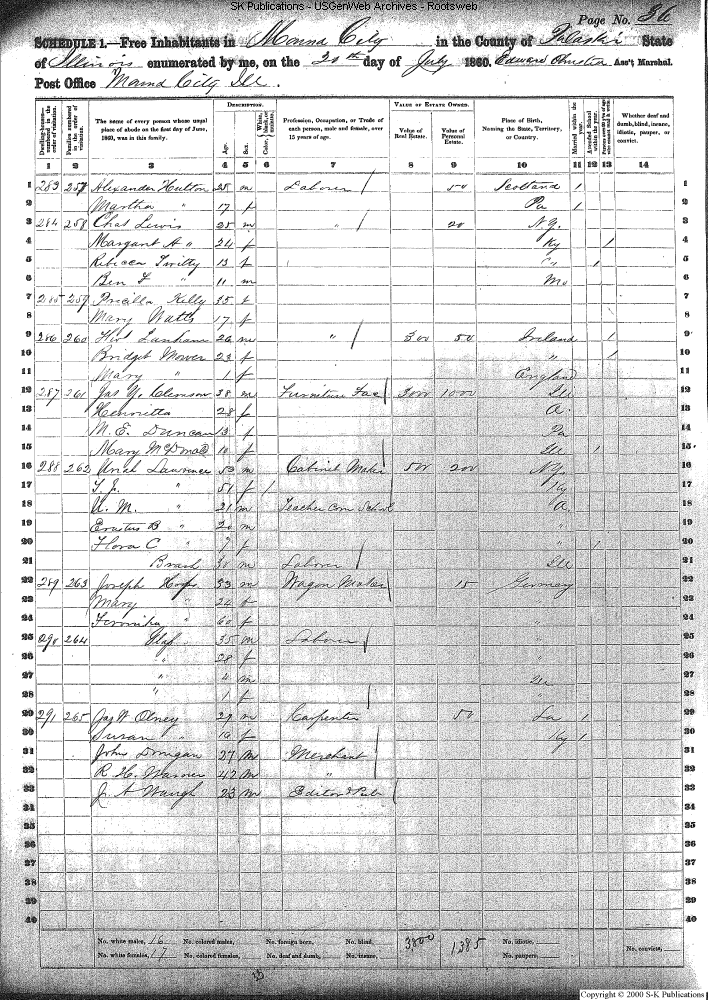 SK Publications - USGenWeb Archives - Rootsweb
Page No. 36
SCHEDULE 1.—Free Inhabitants in Mound City in the County of Pulaski State
of Illinois enumerated by me, on the 20th day of July 1860. Edward Ass't Marshal.
Post Office Mound City Ill.
Dwelling-houses—numbered in the order of visitation.
Families numbered in the order of visitation.
The name of every person whose usual place of abode on the first day of June, 1860, was in this family.
DESCRIPTION.
Age.
Sex.
Color, White, black, or mulatto.
Profession, Occupation, or Trade of each person, male and female, over 15 years of age.
VALUE OF ESTATE OWNED.
Value of Real Estate.
Value of Personal Estate.
Place of Birth, Naming the State, Territory, or Country.
Married within the year.
Attended School within the year.
Whether deaf and dumb, blind, insane, idiotic, pauper, or convict.
1 2 3 4 5 6 7 8 9 10 11 12 13 14
1 283 257 Alexander Hulton 25 m Laborer / 50 Scotland / 1
2 Martha " 17 f Pa / 2
3 284 258 Chas Lewis 25 m " / 20 N.Y. 3
4 Margaret A " 24 f Ky / 4
5 Rebecca Twitty 13 f " / 5
6 Ben F " 11 m Mo 6
7 285 259 Pricilla Kelly 35 f 7
8 Mary Watts 17 f 8
9 286 260 Lanham 26 m " / 300 50 Ireland / 9
10 Bridget Mower 23 f " / 10
11 Mary " 1 f England 11
12 287 261 Jas Y. Clemson 38 m Furniture Fac 3000 1000 Ill 12
13 Henrietta 28 f 13
14 M. E. Duncan 13 f Pa 14
15 Mary McDonald 10 f Ill / 15
16 288 262 Lawrence 53 m Cabinet Maker 500 200 N.Y. 16
17 " 51 f / Ky 17
18 A. M. " 21 m Teacher Com School 18
19 Erastus B " 20 m " 19
20 Flora C " 7 f " / 20
21 Brash 30 m Laborer / Ill 21
22 289 263 Joseph 33 m Wagon Maker 15 Germany 22
23 Mary " 24 f 23
24 " 60 f " 24
25 290 264 35 m Laborer / " 25
26 " 28 f " 26
27 " 4 m Ill 27
28 " 1 f / 28
29 291 265 Jas W Olney 29 m Carpenter 50 La / 29
30 Susan " 16 f Ky / 30
31 John Dougan 27 m Merchant 31
32 R. H. Warner 42 m " 32
33 J. A Waugh 23 m Editor & Pub 33
34 34
35 35
36 36
37 37
38 38
39 39
40 40
No. white males, 16 No. colored males, No. foreign born, No. blind, 3800 1385 No. idiotic,
No. white females, 17 No. colored females, No. deaf and dumb, No. insane, No. paupers, No. convicts,
33
Copyright © 2000 S-K Publications